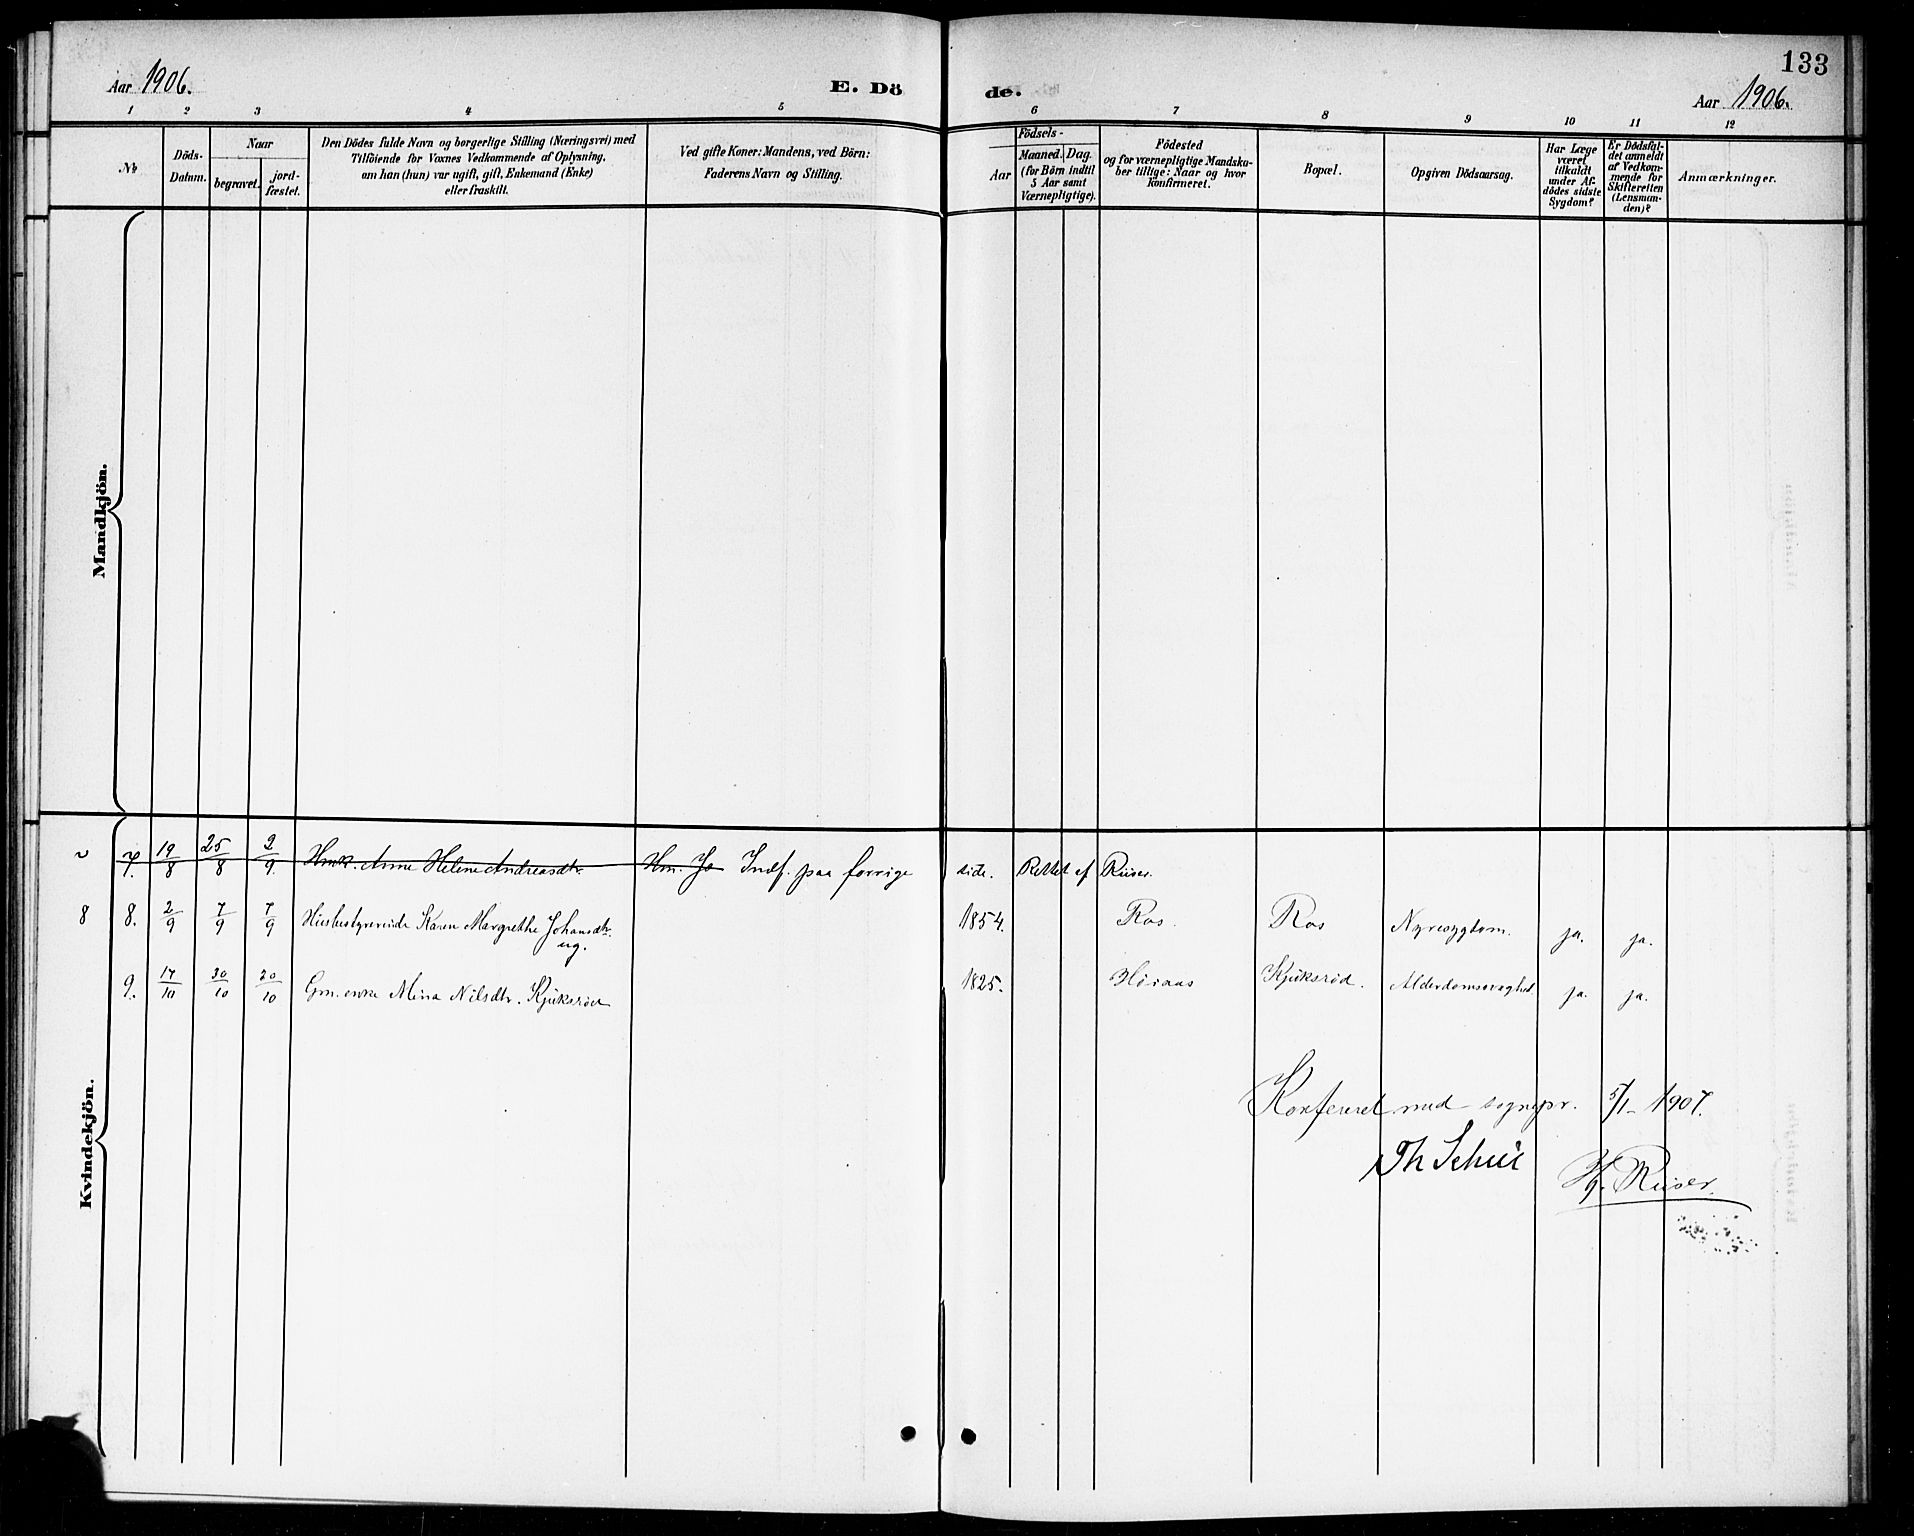 133
Aar 1906.
E. Dö
de.
Aar 1906.
1 2 3 4 5 6 7 8 9 10 11 12
No
Döds-
Datum.
Naar
begravet.
jord-
fæstet.
Den Dödes fulde Navn og borgerlige Stilling (Næringsvei) med
Tilföiende for Voxnes Vedkommende af Oplysning,
om han (hun) var ugift, gift, Enkemand (Enke)
eller fraskilt.
Ved gifte Koner: Mandens, ved Börn:
Faderens Navn og Stilling.
Födsels-
Aar
Maaned. Dag.
(for Börn indtil
5 Aar samt
Værnepligtige).
Födested
og for værnepligtige Mandska-
ber tillige: Naar og hvor
konfirmeret.
Bopæl.
Opgiven Dödsaarsag.
Har Læge
været
tilkaldt
under Af-
dödes sidste
Sygdom?
Er Dödsfal-
det anmeldt
af Vedkom-
mende for
Skifteretten
(Lensman-
den)?
Anmærkninger.
Mandkjön.
Kvindekjön.
7. 19/8 25/8 2/9 Hmk. Anne Helene Andreasdtr. Hm. Jo Indf. paa forrige side. Rettet af Riiser.
8 8. 2/9 7/9 7/9 Husbestyrerinde Karen Margrethe Johansdtr. 1854. Ros. Ros Nyresygdom. ja. ja.
ug.
9. 17/10 30/10 20/10 Gm. enke Mina Nilsdtr. Kjuksrød 1825. Høiaas Kjuksrød. Alderdomssvaghed. ja. ja.
Konfereret med sognepr. 5/1 - 1907.
Th Schüe
Hj. Riiser.